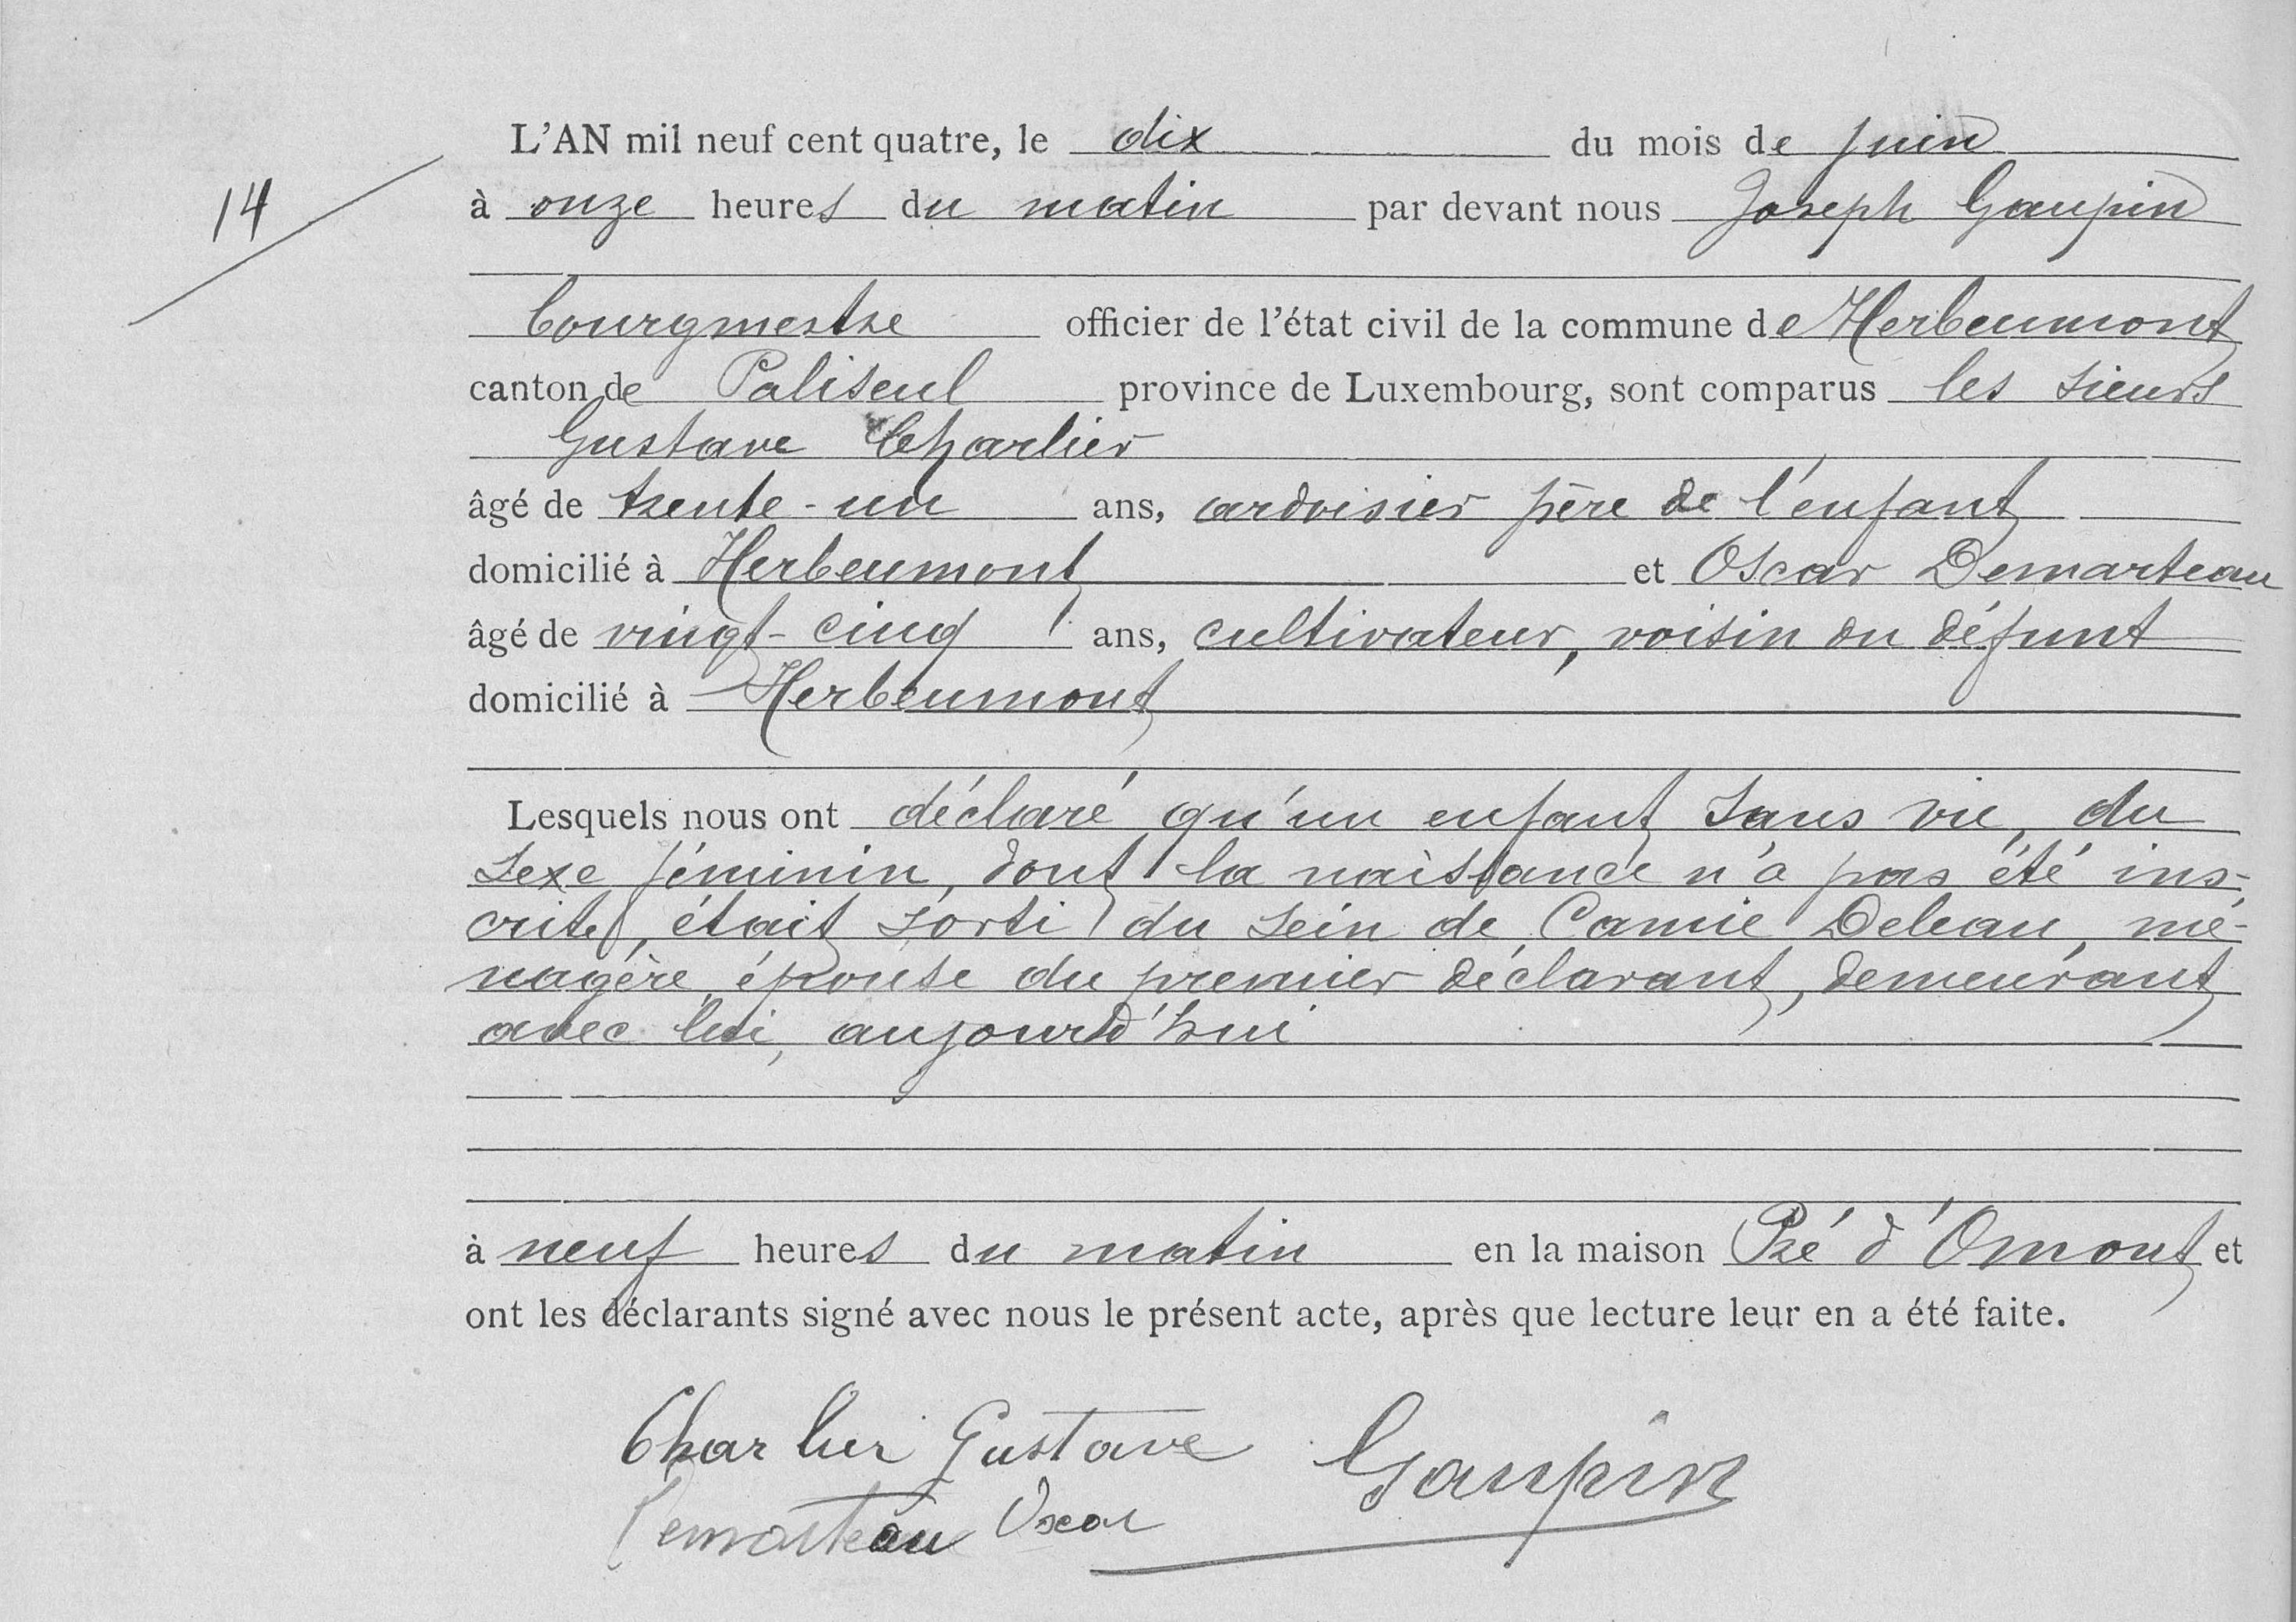 L'AN mil neuf cent quatre, le dix du mois de juin
14
à onze heures du matin par devant nous Joseph Gaupin
bourgmestre officier de l'état civil de la commune de Herbeumont
canton de Paliseul province de Luxembourg, sont comparus les sieurs
Gustave Charlier
âgé de trente-un ans, ardoisier père de l'enfant
domicilié à Herbeumont et Oscar Demarteau
âgé de vingt-cinq ans, cultivateur, voisin du défunt
domicilié à Herbeumont
Lesquels nous ont déclaré qu'un enfant sans vie, du
sexe féminin, dont la naissance n'a pas été ins-
crite, était sorti du sein de Camie Deleau, mé-
nagère, épouse du premier déclarant, demeurant
avec lui, aujourd'hui
à neuf heures du matin en la maison Pré d'Omont et
ont les déclarants signé avec nous le présent acte, après que lecture leur en a été faite.
Charlier Gustave Gaupin
Demarteau Oscar